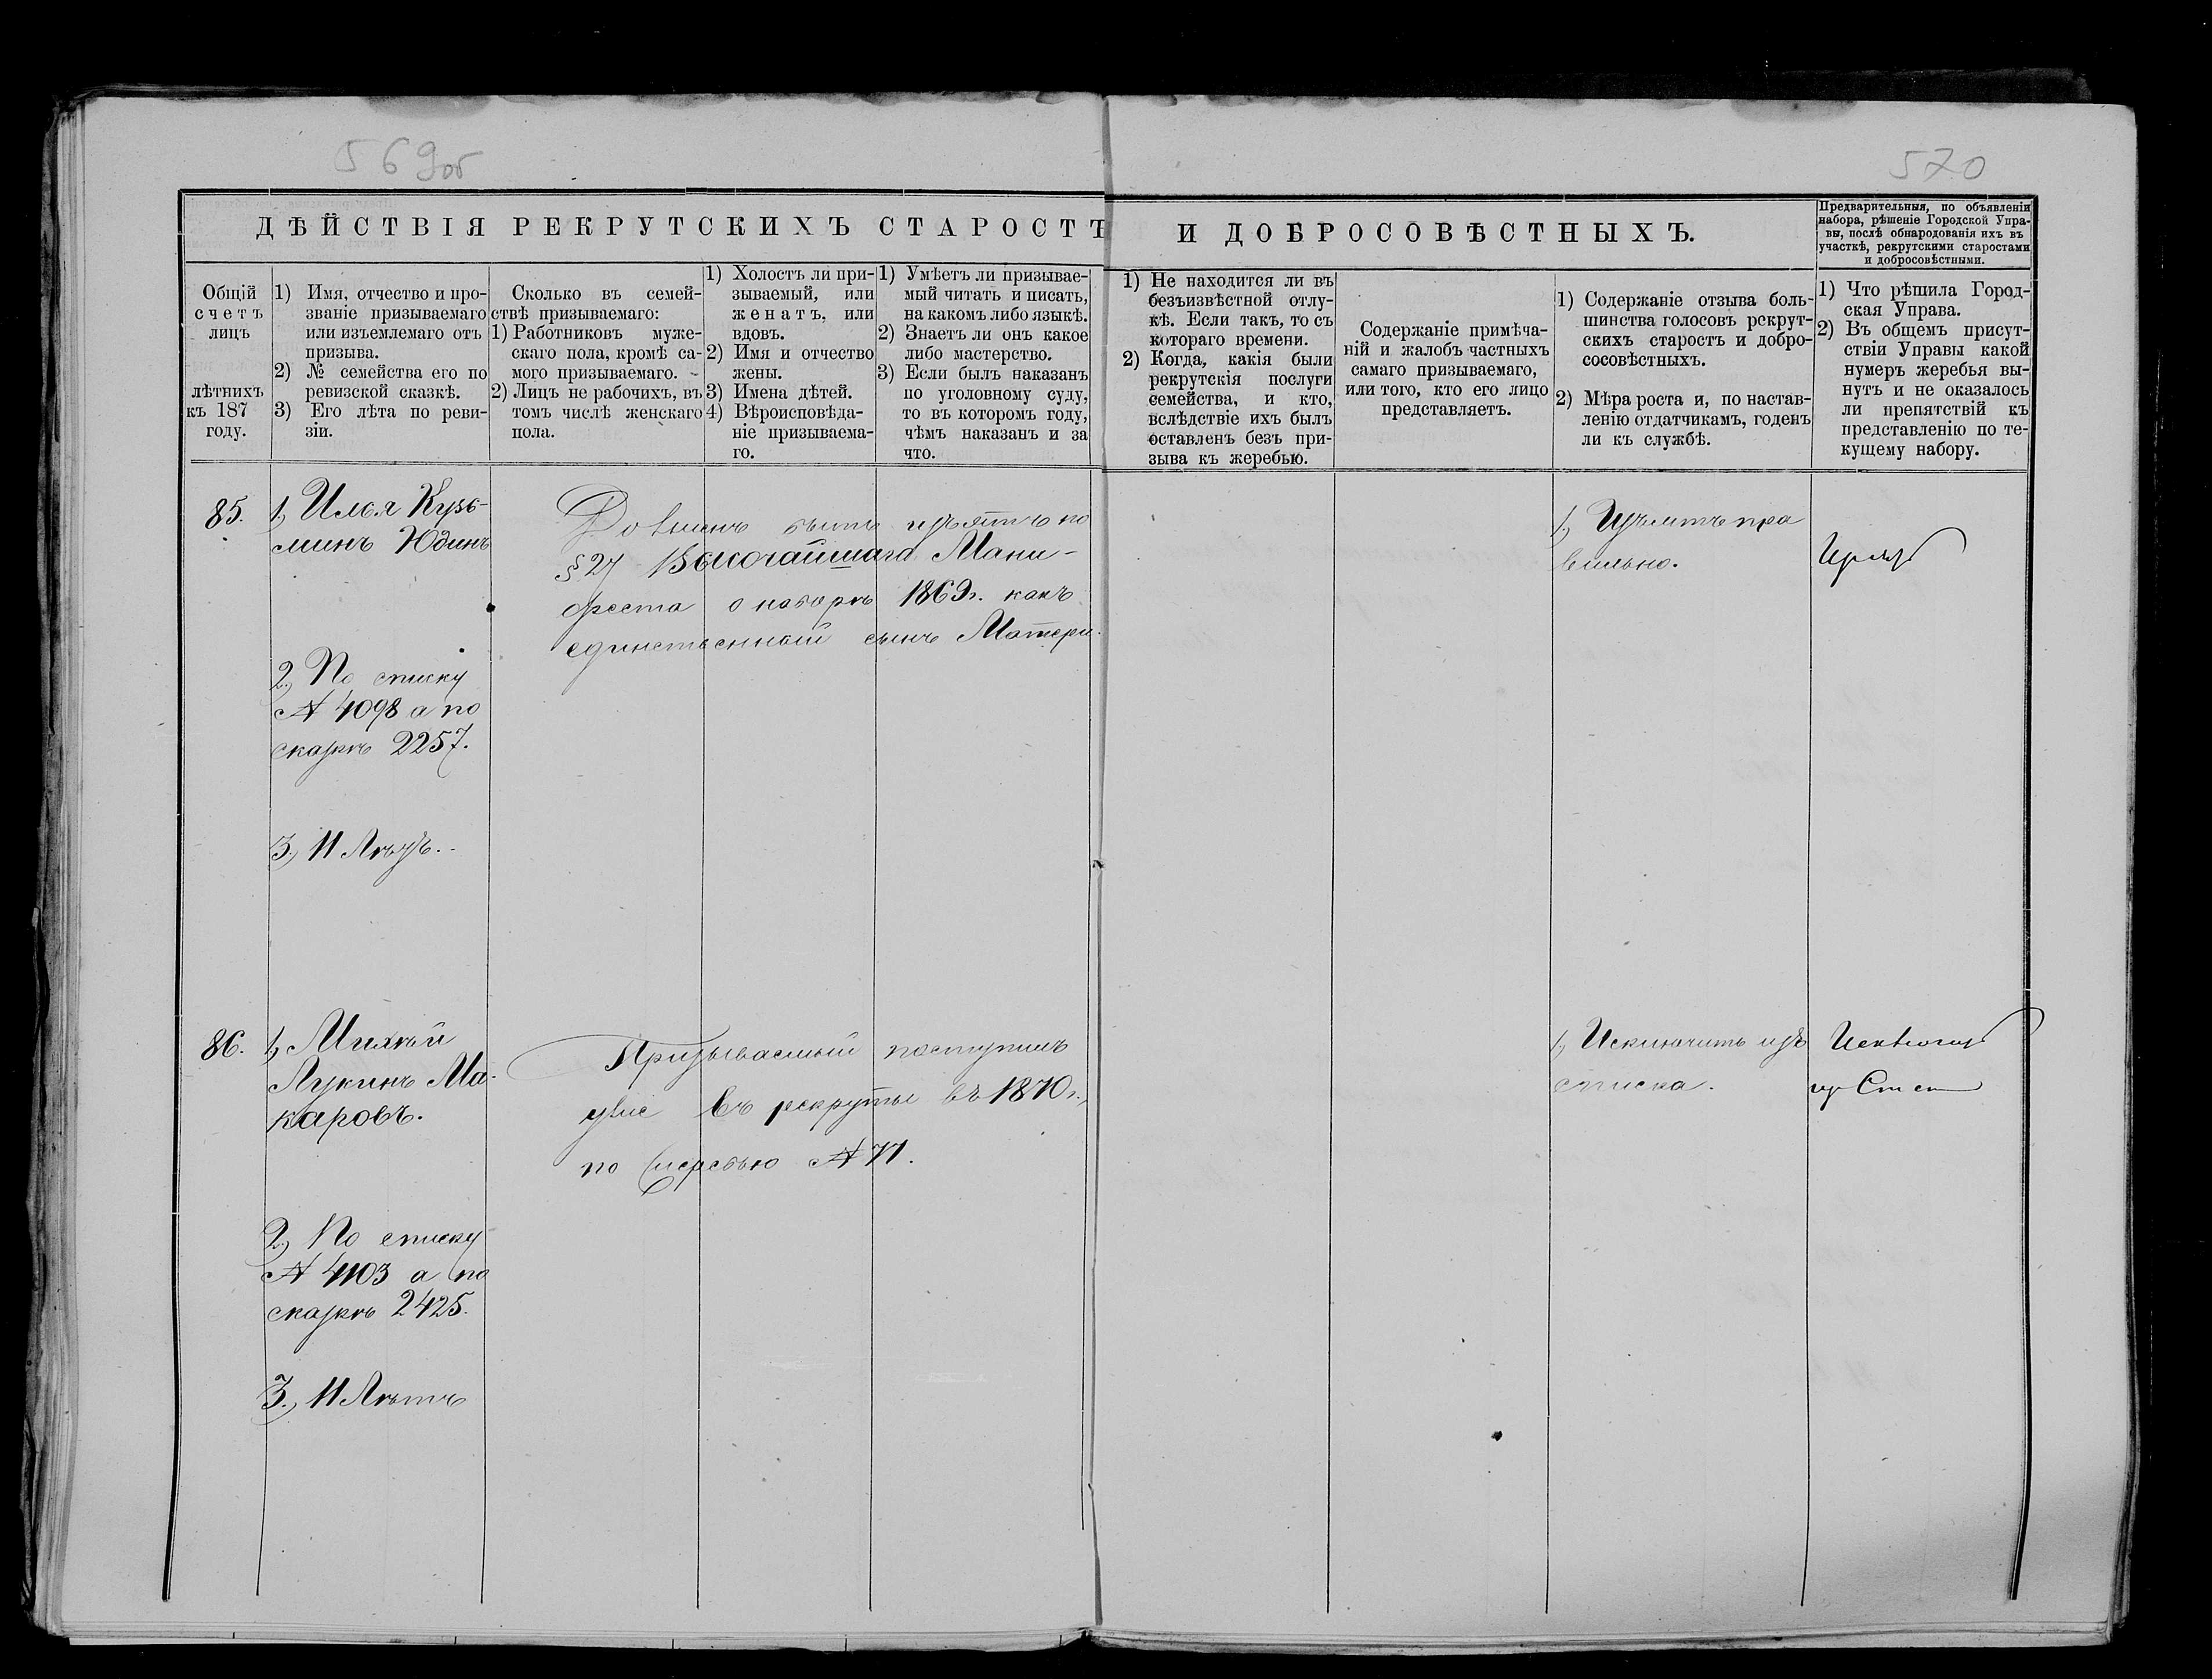 569об
570
ДѢЙСТВІЯ РЕКРУТСКИХЪ СТАРОСТЪ И ДОБРОСОВѢСТНЫХЪ.
Предварительныя, по объявленіи
набора, рѣшеніе Городской Упра-
вы, послѣ обнародованія ихъ въ
участкѣ, рекрутскими старостами
и добросовѣстными.
Общій
счетъ
лицъ
лѣтнихъ
къ 187
году.
1) Имя, отчество и про-
званіе призываемаго
или изъемлемаго отъ
призыва.
2) № семейства его по
ревизской сказкѣ.
3) Его лѣта по реви-
зіи.
Сколько въ семей-
ствѣ призываемаго:
1) Работниковъ муже-
скаго пола, кромѣ са-
мого призываемаго.
2) Лицъ не рабочихъ, въ
томъ числѣ женскаго
пола.
1) Холостъ ли при-
зываемый, или
женатъ, или
вдовъ.
2) Имя и отчество
жены.
3) Имена дѣтей.
4) Вѣроисповѣда-
ніе призываема-
го.
1) Умѣетъ ли призывае-
мый читать и писать,
на какомъ либо языкѣ.
2) Знаетъ ли онъ какое
либо мастерство.
3) Если былъ наказанъ
по уголовному суду,
то въ которомъ году,
чѣмъ наказанъ и за
что.
1) Не находится ли въ
безъизвѣстной отлу-
кѣ. Если такъ, то съ
котораго времени.
2) Когда, какія были
рекрутскія послуги
семейства, и кто,
вслѣдствіе ихъ былъ
оставленъ безъ при-
зыва къ жеребью.
Содержаніе примѣча-
ній и жалобъ частныхъ
самаго призываемаго,
или того, кто его лицо
представляетъ.
1) Содержаніе отзыва боль-
шинства голосовъ рекрут-
скихъ старостъ и добро-
сосовѣстныхъ.
2) Мѣра роста и, по настав-
ленію отдатчикамъ, годенъ
ли къ службѣ.
1) Что рѣшила Город-
ская Управа.
2) Въ общемъ присут-
ствіи Управы какой
нумеръ жеребья вы-
нутъ и не оказалось
ли препятствій къ
представленію по те-
кущему набору.
85.
1, Илья Кузь-
минъ Юдинъ
2, По списку
№ 4098 а по
сказкѣ 2257.
3, 11 Лѣтъ.
Долженъ быть изъятъ по
§ 27 Высочайшаго Мани-
феста о наборѣ 1869 г. какъ
единственный сынъ Матери.
1, Изъятъ пра
вильно.
86.
1, Михѣй
Лукинъ Ма-
каровъ.
2, По списку
№ 4103 а по
сказкѣ 2425.
3, 11 Лѣтъ
Призываемый поступилъ
уже въ рекруты въ 1870 г.,
по жеребью № 77.
1, Исключить изъ
списка.